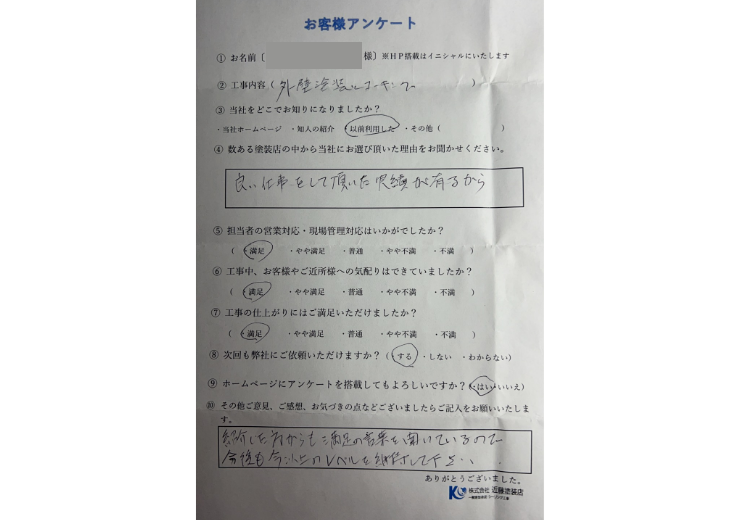 お客様アンケート
① お名前〔 様〕※HP搭載はイニシャルにいたします
② 工事内容（ 外壁塗装 コーキング ）
③ 当社をどこでお知りになりましたか？
・当社ホームページ ・知人の紹介 ・以前利用した ・その他（ ）
④ 数ある塗装店の中から当社にお選び頂いた理由をお聞かせください。
良い仕事をして頂いた実績が有るから
⑤ 担当者の営業対応・現場管理対応はいかがでしたか？
（ ・満足 ・やや満足 ・普通 ・やや不満 ・不満 ）
⑥ 工事中、お客様やご近所様への気配りはできていましたか？
（ ・満足 ・やや満足 ・普通 ・やや不満 ・不満 ）
⑦ 工事の仕上がりにはご満足いただけましたか？
（ ・満足 ・やや満足 ・普通 ・やや不満 ・不満 ）
⑧ 次回も弊社にご依頼いただけますか？（・する ・しない ・わからない）
⑨ ホームページにアンケートを搭載してもよろしいですか？（・はい・いいえ）
⑩ その他ご意見、ご感想、お気づきの点などございましたらご記入をお願いいたしま
す。
紹介した方からも満足の言葉を聞いているので
今後も今以上のレベルを維持して下さい
ありがとうございました。
株式会社 近藤塗装店